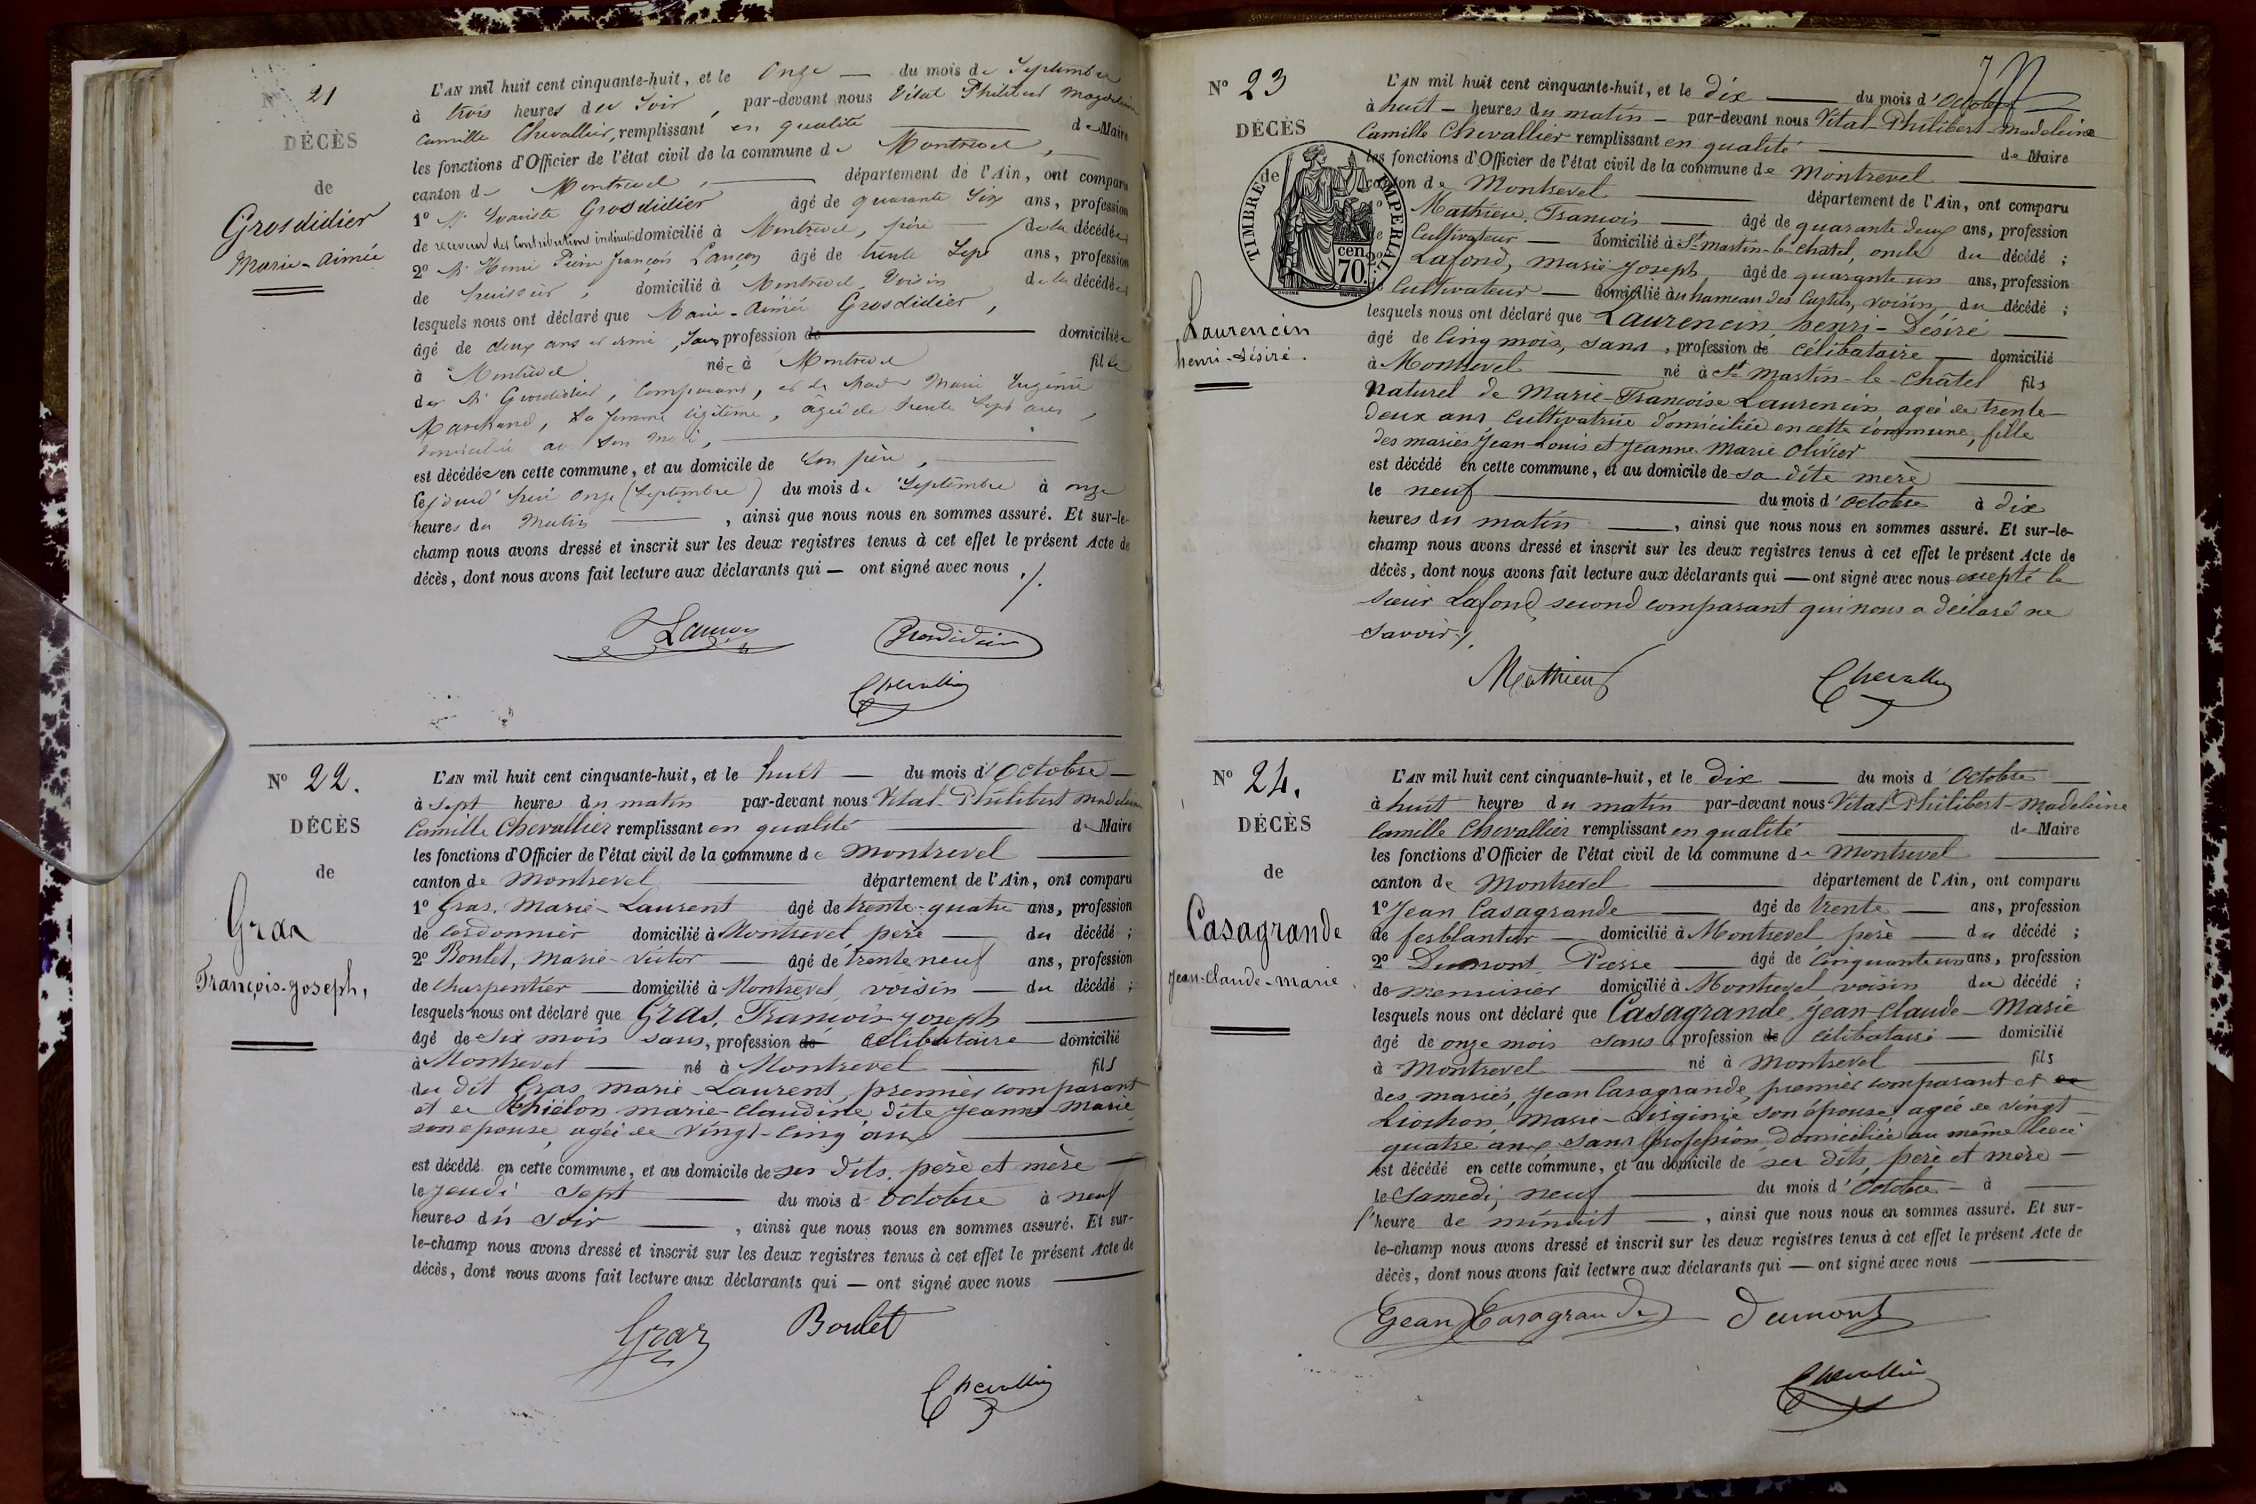 N° 21
DÉCÈS
de
Grosdidier
Marie-Aimée
L'AN mil huit cent cinquante-huit, et le Onze — du mois de Septembre
à trois heures du Soir, par-devant nous Vital Philibert Magdeleine
Camille Chevallier, remplissant en qualité — de Maire
les fonctions d'Officier de l'état civil de la commune de Montrevel, —
canton de Montrevel, — département de l'Ain, ont comparu
1° Mr Evariste Grosdidier âgé de quarante Six ans, profession
de receveur des Contributions indirectes domicilié à Montrevel, père — de la décédée,
2° Mr Henri Pierre François Lançon âgé de trente Sept ans, profession
de huissier, domicilié à Montrevel, Voisin de la décédée,
lesquels nous ont déclaré que Marie-Aimée Grosdidier,
âgé de deux ans et demi, Sans profession de — domiciliée
à Montrevel née à Montrevel fille
de Mr Grosdidier, Comparant, et de Marie Eugénie
Marchand, Sa femme légitime, âgée de trente Sept ans,
domiciliée avec Son Mari, —
est décédée en cette commune, et au domicile de Son père, —
le jourd'hui onze (Septembre) du mois de Septembre à onze
heures du Matin —, ainsi que nous nous en sommes assuré. Et sur-le-
champ nous avons dressé et inscrit sur les deux registres tenus à cet effet le présent Acte de
décès, dont nous avons fait lecture aux déclarants qui — ont signé avec nous ./.
Lançon Grosdidier
Chevallier
N° 22.
DÉCÈS
de
Gras
François-Joseph,
L'AN mil huit cent cinquante-huit, et le huit — du mois d'Octobre —
à sept heures du matin par-devant nous Vital-Philibert Madeleine
Camille Chevallier remplissant en qualité — de Maire
les fonctions d'Officier de l'état civil de la commune de Montrevel —
canton de Montrevel — département de l'Ain, ont comparu
1° Gras, Marie-Laurent âgé de trente-quatre ans, profession
de Cordonnier domicilié à Montrevel, père — du décédé ;
2° Boulet, Marie-Victor — âgé de trente neuf ans, profession
de Charpentier — domicilié à Montrevel, voisin — du décédé ;
lesquels nous ont déclaré que Gras, François-Joseph —
âgé de six mois sans, profession de célibataire domicilié
à Montrevel — né à Montrevel — fils
du dit Gras, Marie-Laurent, premier comparant
et de Thiélon Marie-Claudine dite Jeanne-Marie
son épouse, agée de vingt-cinq ans —
est décédé en cette commune, et au domicile de ses dits, père et mère —
le jeudi sept — du mois d'Octobre à neuf
heures du soir —, ainsi que nous nous en sommes assuré. Et sur-
le-champ nous avons dressé et inscrit sur les deux registres tenus à cet effet le présent Acte de
décès, dont nous avons fait lecture aux déclarants qui — ont signé avec nous —
Gras Boulet
Chevallier
N° 23
DÉCÈS
de
TIMBRE IMPÉRIAL
70 cen
Laurencin
henri-Désiré.
L'AN mil huit cent cinquante-huit, et le Dix — du mois d'Octobre
à huit — heures du matin — par-devant nous Vital-Philibert-Madeleine
Camille Chevallier remplissant en qualité — de Maire
les fonctions d'Officier de l'état civil de la commune de Montrevel —
canton de Montrevel — département de l'Ain, ont comparu
1° Mathieu, François — âgé de quarante deux ans, profession
de Cultivateur — domicilié à St martin-le-chatel, oncle du décédé ;
2° Lafond, Marie Joseph, âgé de quarante un ans, profession
de Cultivateur — domicilié au hameau des Custels, voisin, du décédé ;
lesquels nous ont déclaré que Laurencin, henri-Désiré —
âgé de Cinq mois, sans, profession de célibataire — domicilié
à Montrevel — né à St Martin-le-Châtel fils
naturel de Marie-Françoise Laurencin agée de trente-
deux ans, cultivatrice domiciliée en cette commune, fille
des mariés Jean-Louis et Jeanne Marie Olivier —
est décédé en cette commune, et au domicile de sa dite mère —
le neuf — du mois d'Octobre à dix
heures du matin —, ainsi que nous nous en sommes assuré. Et sur-le-
champ nous avons dressé et inscrit sur les deux registres tenus à cet effet le présent Acte de
décès, dont nous avons fait lecture aux déclarants qui — ont signé avec nous excepté le
sieur Lafond, second comparant qui nous a déclaré ne
savoir./.
Mathieu Chevallier
N° 24.
DÉCÈS
de
Casagrande
Jean-Claude-Marie
L'AN mil huit cent cinquante-huit, et le Dix — du mois d'Octobre —
à huit heures du matin par-devant nous Vital-Philibert-Madeleine
Camille Chevallier remplissant en qualité — de Maire
les fonctions d'Officier de l'état civil de la commune de Montrevel —
canton de Montrevel — département de l'Ain, ont comparu
1° Jean Casagrande — âgé de trente — ans, profession
de ferblantier — domicilié à Montrevel père — du décédé ;
2° Dumont, Pierre — âgé de Cinquante un ans, profession
de menuisier domicilié à Montrevel voisin du décédé ;
lesquels nous ont déclaré que Casagrande, Jean-Claude-Marie
âgé de onze mois sans, profession de célibataire — domicilié
à Montrevel — né à Montrevel — fils
des mariés, Jean Casagrande, premier comparant et de
Liochon, Marie-Virginie son épouse, agée de vingt-
quatre ans sans profession, domiciliée au même lieu
est décédé en cette commune, et au domicile de ses dits, père et mère —
le Samedi, neuf — du mois d'Octobre — à —
l'heure de minuit —, ainsi que nous nous en sommes assuré. Et sur-
le-champ nous avons dressé et inscrit sur les deux registres tenus à cet effet le présent Acte de
décès, dont nous avons fait lecture aux déclarants qui — ont signé avec nous —
Jean Casagrande Dumont
Chevallier